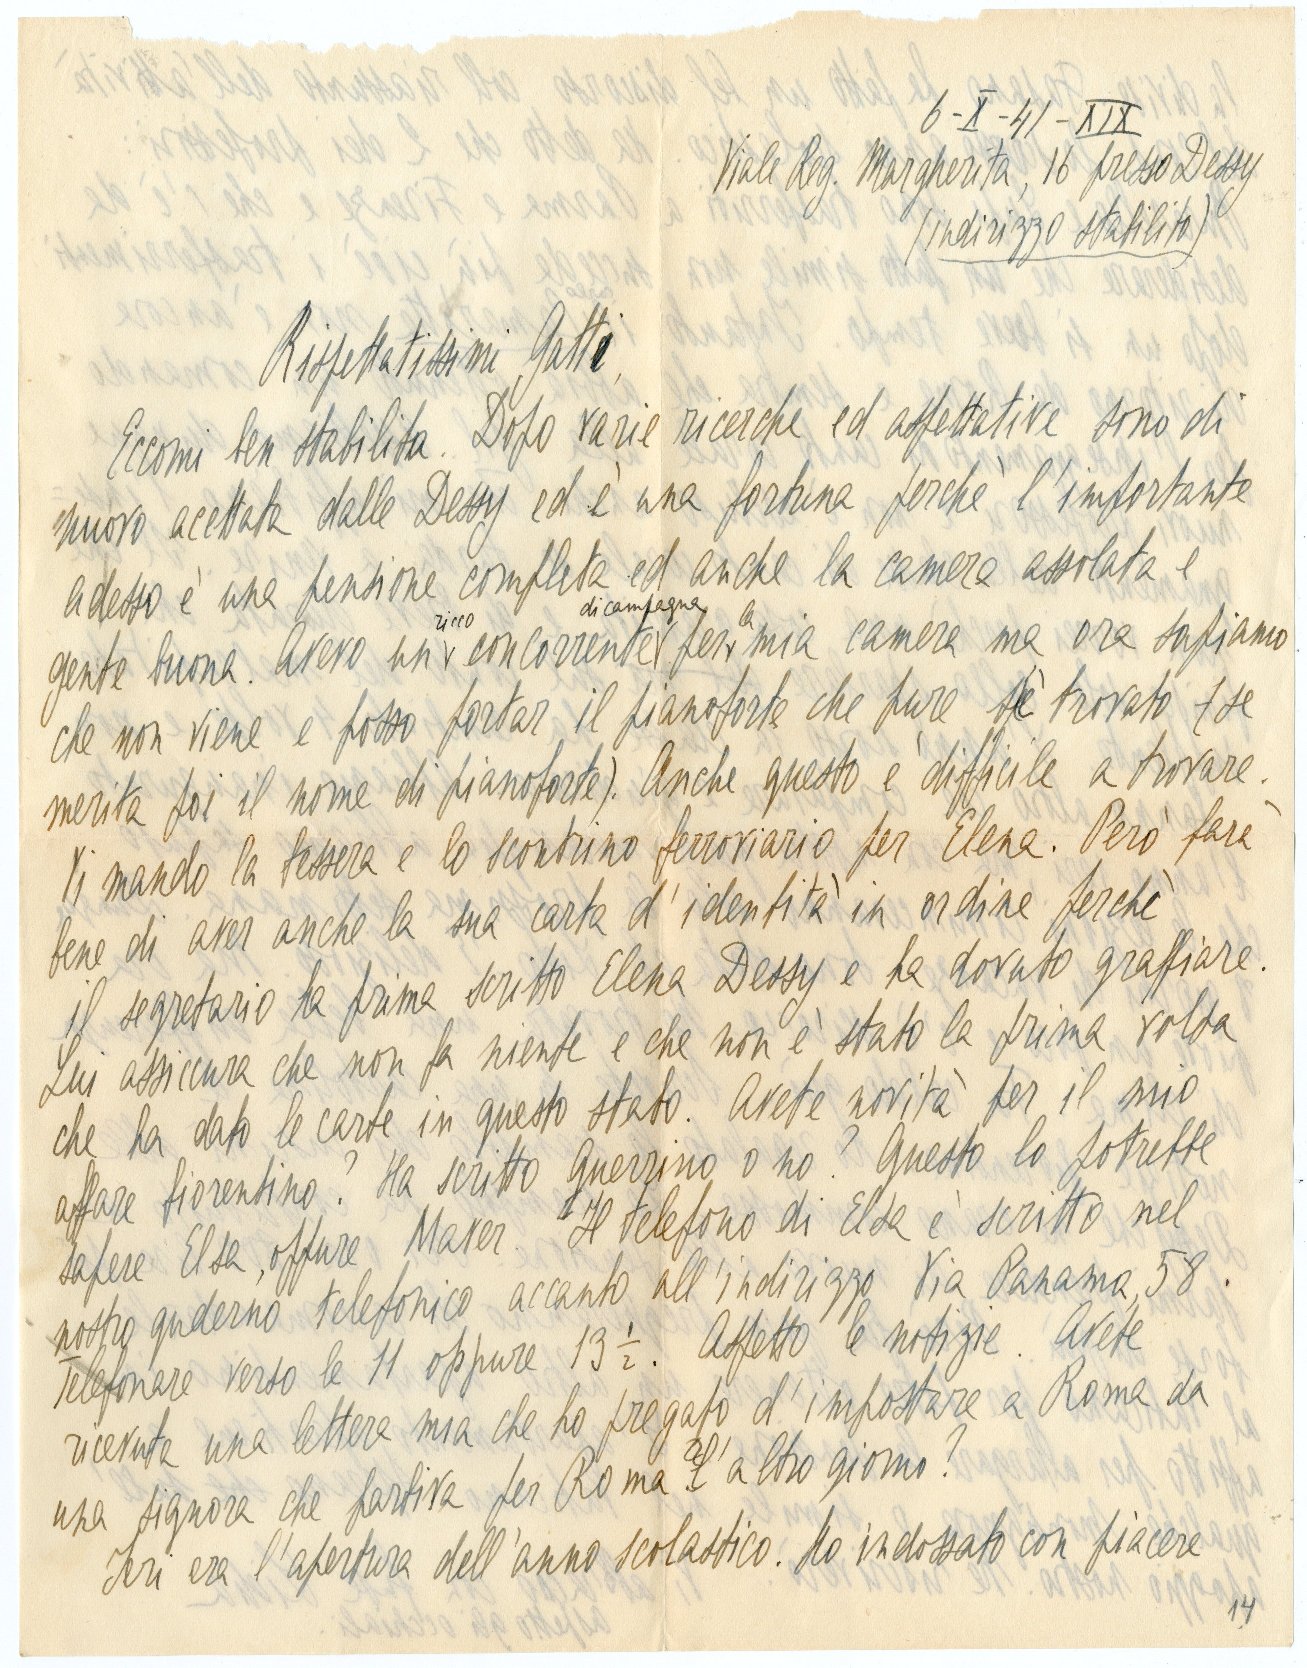 6-X-41-XIX
Viale Reg. Margherita, 16 presso Dessy
(indirizzo stabilito)
Rispettatissimi Gatti,
Eccomi ben stabilita. Dopo varie ricerche ed aspettative sono di
nuovo acettata dalle Dessy ed è una fortuna perchè l'importante
adesso è una pensione completa ed anche la camera assolata e
gente buona. Avevo un ricco concorrente di campagna per la mia camera ma ora sapiamo
che non viene e posso portar il pianoforte che pure s'è trovato (se
merita poi il nome di pianoforte). Anche questo è difficile a trovare.
Vi mando la tessera e lo scontrino ferroviario per Elena. Però farà
bene di aver anche la sua carta d'identità in ordine perchè
il segretario ha prima scritto Elena Dessy e ha dovuto graffiare.
Lui assicura che non fa niente e che non è stato la prima volta
che ha dato le carte in questo stato. Avete novità per il mio
affare fiorentino? Ha scritto Guerrino o no? Questo lo potrebbe
sapere Elsa, oppure Maver. Il telefono di Elsa è scritto nel
nostro quderno telefonico accanto all'indirizzo Via Panama, 58.
Telefonare verso le 11 oppure 13 ½. Aspetto le notizie. Avete
ricevuta una lettera mia che ho pregato d'impostare a Roma da
una signora che partiva per Roma l'altro giorno?
Ieri era l'apertura dell'anno scolastico. Ho indossato con piacere
14